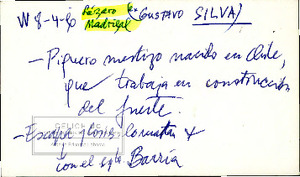 W 8-4-80 Lázaro Madrigal (GUSTAVO SILVA)
- Piquero mestizo nacido en Chile,
que trabaja en construcción
del fuerte.
- Escapa y lo matan
con el sgto. Barría